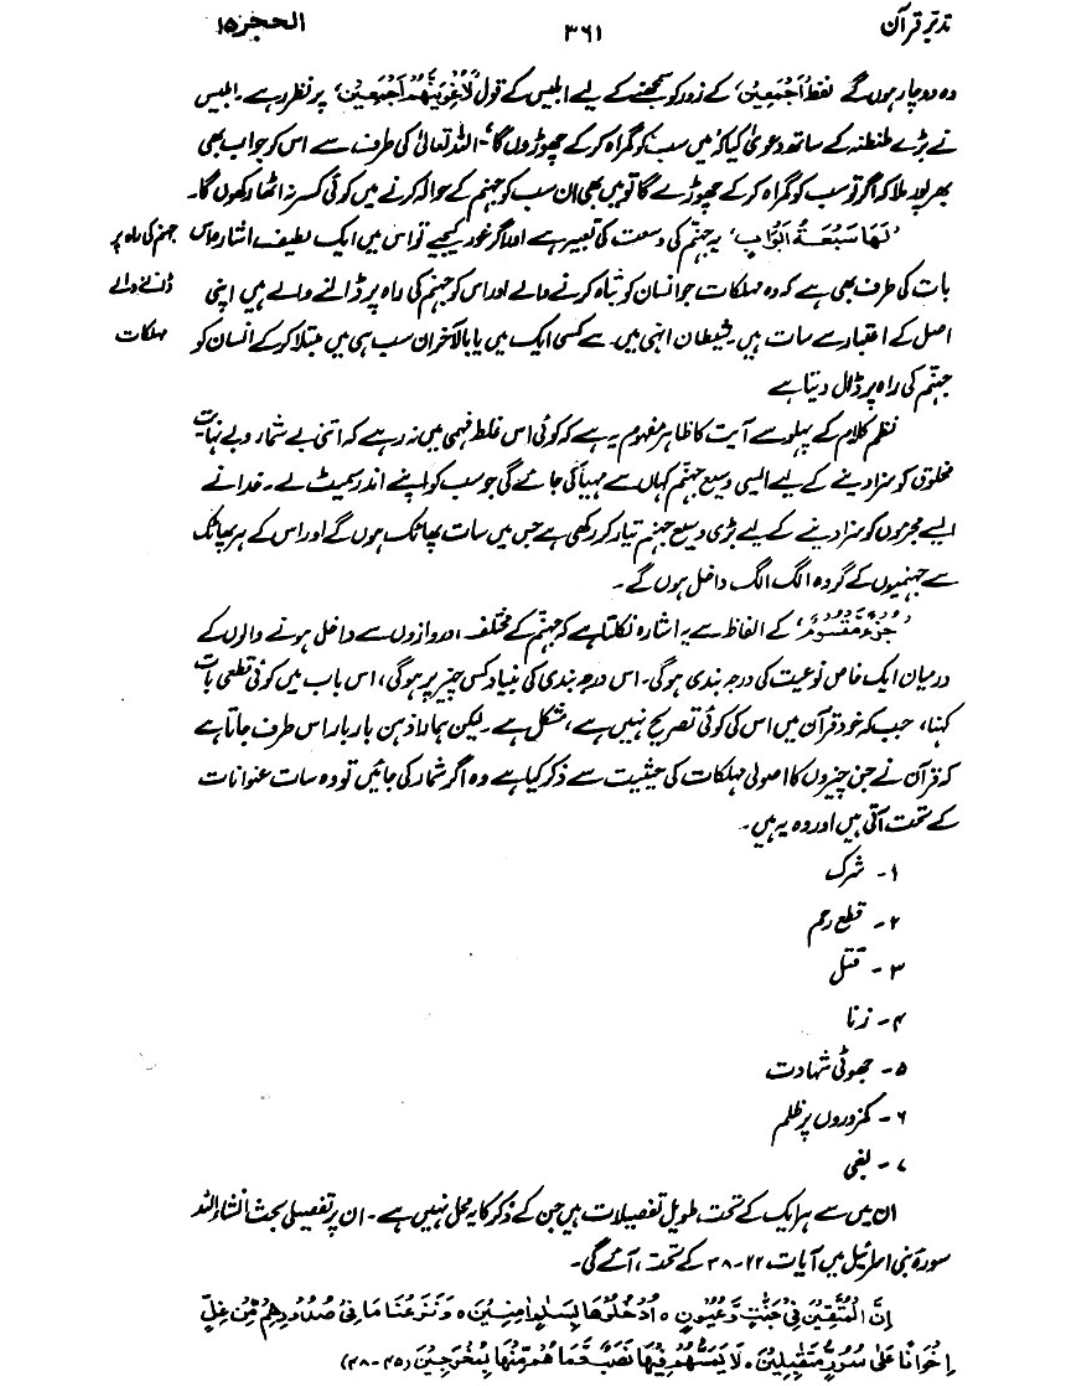 تدبر قرآن ۳۶۱ الحجر ۱۵
وہ دوچار ہوں گے لفظ ’اَجْمَعِیْنَ‘ کے زور کو سمجھنے کے لیے ابلیس کے قول ’لَاُغْوِیَنَّھُمْ اَجْمَعِیْنَ‘ پر نظر رہے۔ ابلیس
نے بڑے طنطنہ کے ساتھ دعویٰ کیا کہ ’میں سب کو گمراہ کر کے چھوڑوں گا‘۔ اللہ تعالیٰ کی طرف سے اس کو جواب بھی
بھرپور ملا کہ اگر تو سب کو گمراہ کر کے چھوڑے گا تو میں بھی ان سب کو جہنم کے حوالہ کرنے میں کوئی کسر نہ اٹھا رکھوں گا۔
’لَھَا سَبْعَۃُ اَبْوَابٍ‘ یہ جہنّم کی وسعت کی تعبیر ہے اور اگر غور کیجیے تو اس میں ایک لطیف اشارہ اس
جہنم کی راہ پر
بات کی طرف بھی ہے کہ وہ مہلکات جو انسان کو تباہ کرنے والے اور اس کو جہنم کی راہ پر ڈالنے والے ہیں اپنی
ڈالنے والے
اصل کے اعتبار سے سات ہیں۔ شیطان انہی میں سے کسی ایک میں یا بالآخر ان سب ہی میں مبتلا کر کے انسان کو
مہلکات
جہنّم کی راہ پر ڈال دیتا ہے
نظم کلام کے پہلو سے آیت کا ظاہر مفہوم یہ ہے کہ کوئی اس غلط فہمی میں نہ رہے کہ اتنی بے شمار و بے نہایت
مخلوق کو سزا دینے کے لیے ایسی وسیع جہنّم کہاں سے مہیا کی جائے گی جو سب کو اپنے اندر سمیٹ لے۔ خدا نے
ایسے مجرموں کو سزا دینے کے لیے بڑی وسیع جہنم تیار کر رکھی ہے جس میں سات پھاٹک ہوں گے اور اس کے ہر پھاٹک
سے جہنمیوں کے گروہ الگ الگ داخل ہوں گے۔
’جُزْءٌ مَّقْسُوْمٌ‘ کے الفاظ سے یہ اشارہ نکلتا ہے کہ جہنّم کے مختلف دروازوں سے داخل ہونے والوں کے
درمیان ایک خاص نوعیت کی درجہ بندی ہو گی۔ اس درجہ بندی کی بنیاد کس چیز پر ہو گی، اس باب میں کوئی قطعی بات
کہنا، جب کہ خود قرآن میں اس کی کوئی تصریح نہیں ہے، مشکل ہے۔ لیکن ہمارا ذہن بار بار اس طرف جاتا ہے
کہ قرآن نے جن چیزوں کا اصولی مہلکات کی حیثیت سے ذکر کیا ہے وہ اگر شمار کی جائیں تو وہ سات عنوانات
کے تحت آتی ہیں اور وہ یہ ہیں۔
۱۔ شرک
۲۔ قطع رحم
۳۔ قتل
۴۔ زنا
۵۔ جھوٹی شہادت
۶۔ کمزوروں پر ظلم
۷۔ بغی
ان میں سے ہر ایک کے تحت طویل تفصیلات ہیں جن کے ذکر کا یہ محل نہیں ہے۔ ان پر تفصیلی بحث انشاء اللہ
سورۂ بنی اسرائیل میں آیات ۲۲-۳۸ کے تحت، آئے گی۔
اِنَّ الْمُتَّقِیْنَ فِیْ جَنّٰتٍ وَّعُیُوْنٍ ہ اُدْخُلُوْھَا بِسَلٰمٍ اٰمِنِیْنَ ہ وَنَزَعْنَا مَا فِیْ صُدُوْرِھِمْ مِّنْ غِلٍّ
اِخْوَانًا عَلٰی سُرُرٍ مُّتَقٰبِلِیْنَ ہ لَا یَمَسُّھُمْ فِیْھَا نَصَبٌ وَّمَا ھُمْ مِّنْھَا بِمُخْرَجِیْنَ (۴۵-۴۸)